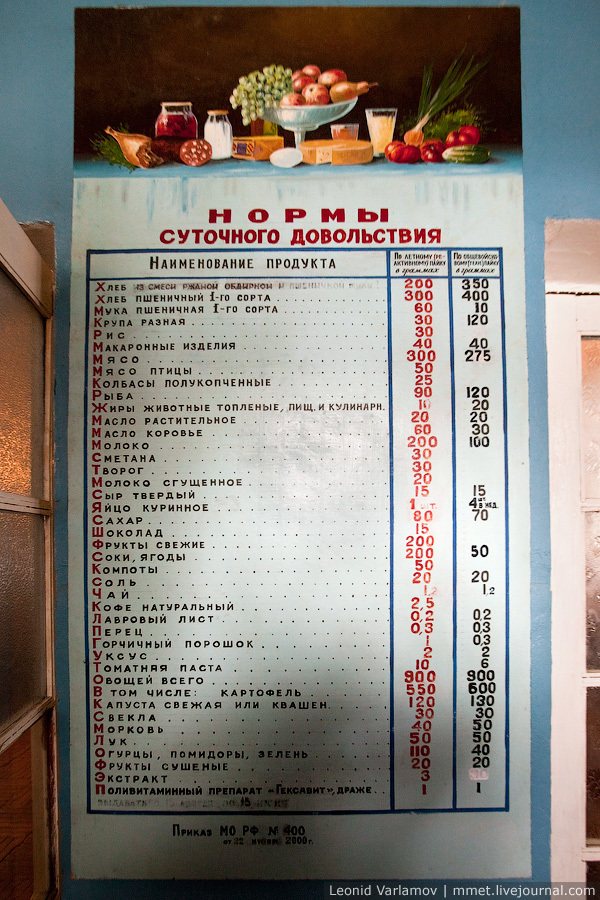 НОРМЫ
СУТОЧНОГО ДОВОЛЬСТВИЯ
НАИМЕНОВАНИЕ ПРОДУКТА ПО ЛЕТНОМУ (РЕАКТИВНОМУ) ПАЙКУ В ГРАММАХ ПО ОБЩЕВОЙСКОВОМУ ПАЙКУ В ГРАММАХ
ХЛЕБ ИЗ СМЕСИ РЖАНОЙ ОБДИРНОЙ И ПШЕНИЧНОЙ 200 350
ХЛЕБ ПШЕНИЧНЫЙ 1-ГО СОРТА 300 400
МУКА ПШЕНИЧНАЯ 1-ГО СОРТА 60 10
КРУПА РАЗНАЯ 30 120
РИС 30
МАКАРОННЫЕ ИЗДЕЛИЯ 40 40
МЯСО 300 275
МЯСО ПТИЦЫ 50
КОЛБАСЫ ПОЛУКОПЧЕННЫЕ 25
РЫБА 90 120
ЖИРЫ ЖИВОТНЫЕ ТОПЛЕНЫЕ, ПИЩ. И КУЛИНАРН. 10 20
МАСЛО РАСТИТЕЛЬНОЕ 20 20
МАСЛО КОРОВЬЕ 60 30
МОЛОКО 200 100
СМЕТАНА 30
ТВОРОГ 30
МОЛОКО СГУЩЕННОЕ 20
СЫР ТВЕРДЫЙ 15 15
ЯЙЦО КУРИННОЕ 1 4 ШТ В НЕД.
САХАР 80 70
ШОКОЛАД 15
ФРУКТЫ СВЕЖИЕ 200
СОКИ, ЯГОДЫ 200 50
КОМПОТЫ 50
СОЛЬ 20 20
ЧАЙ 1,2 1,2
КОФЕ НАТУРАЛЬНЫЙ 2,5
ЛАВРОВЫЙ ЛИСТ 0,2 0,2
ПЕРЕЦ 0,3 0,3
ГОРЧИЧНЫЙ ПОРОШОК 1 0,3
УКСУС 2 2
ТОМАТНАЯ ПАСТА 10 6
ОВОЩЕЙ ВСЕГО 900 900
В ТОМ ЧИСЛЕ: КАРТОФЕЛЬ 550 600
КАПУСТА СВЕЖАЯ ИЛИ КВАШЕН. 120 130
СВЕКЛА 30 30
МОРКОВЬ 40 50
ЛУК 50 50
ОГУРЦЫ, ПОМИДОРЫ, ЗЕЛЕНЬ 110 40
ФРУКТЫ СУШЕНЫЕ 20 20
ЭКСТРАКТ 3
ПОЛИВИТАМИННЫЙ ПРЕПАРАТ "ГЕКСАВИТ", ДРАЖЕ 1 1
ПРИКАЗ МО РФ № 400
ОТ 22 ИЮЛЯ 2000 Г.
Leonid Varlamov | mmet.livejournal.com